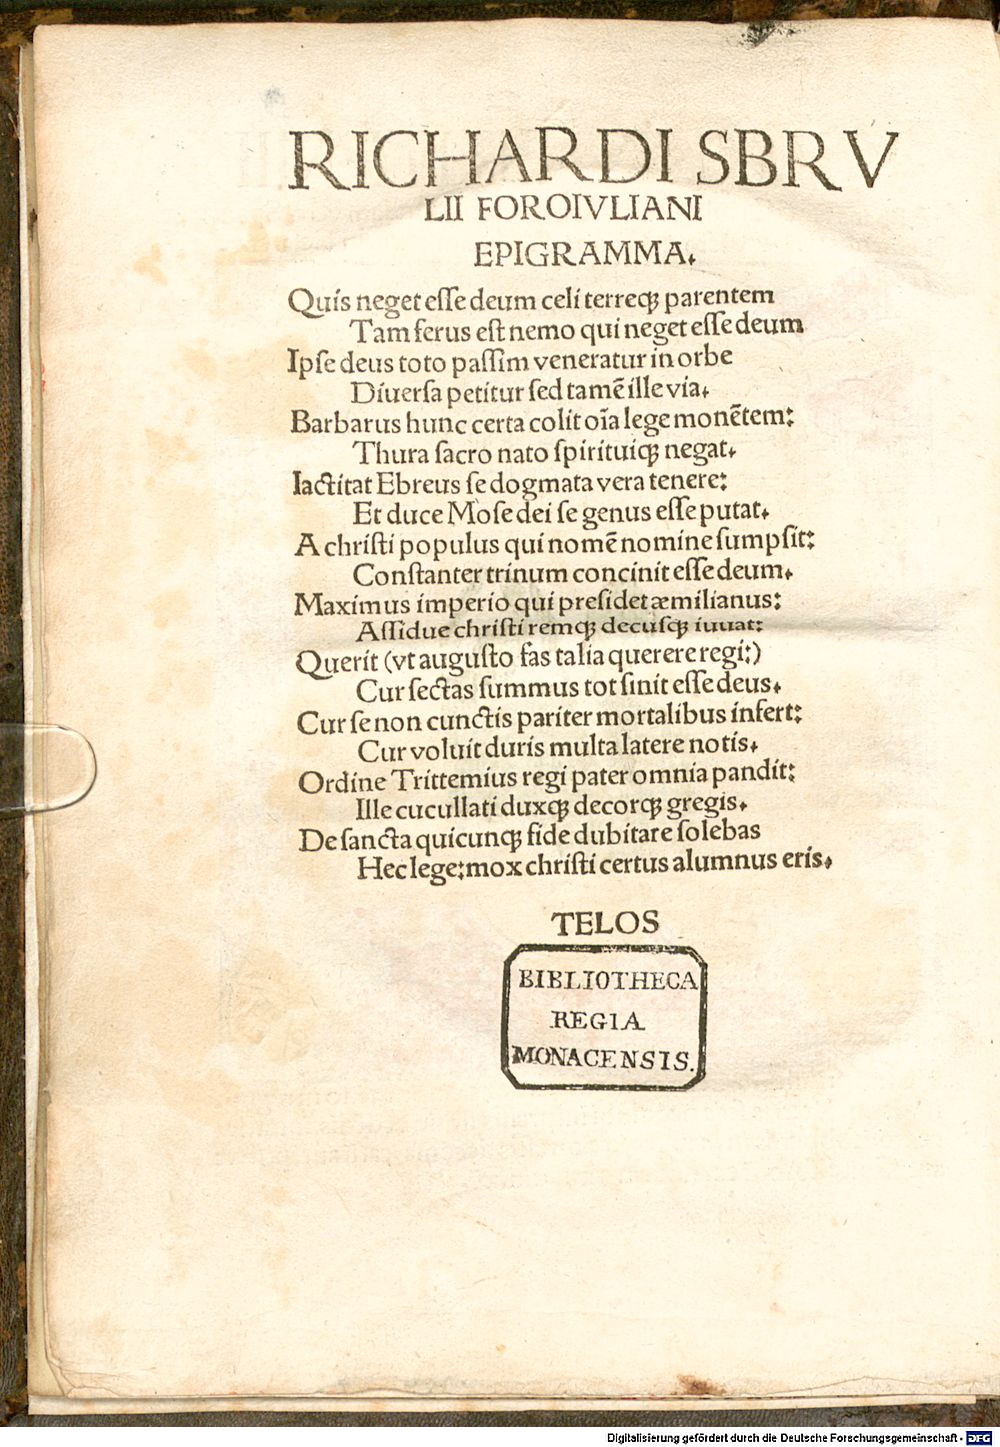 RICHARDI SBRV
LII FOROIVLIANI
EPIGRAMMA.
Quis neget esse deum celi terreqꝫ parentem
Tam ferus est nemo qui neget esse deum
Ipse deus toto passim veneratur in orbe
Diuersa petitur sed tamē ille via.
Barbarus hunc certa colit oīa lege monētem:
Thura sacro nato spirituiqꝫ negat.
Iactitat Ebreus se dogmata vera tenere:
Et duce Mose dei se genus esse putat.
A christi populus qui nomē nomine sumpsit:
Constanter trinum concinit esse deum.
Maximus imperio qui presidet æmilianus:
Assidue christi remqꝫ decusqꝫ iuuat:
Querit (vt augusto fas talia querere regi:)
Cur sectas summus tot sinit esse deus.
Cur se non cunctis pariter mortalibus infert:
Cur voluit duris multa latere notis.
Ordine Trittemius regi pater omnia pandit:
Ille cucullati duxqꝫ decorqꝫ gregis.
De sancta quicunqꝫ fide dubitare solebas
Hec lege: mox christi certus alumnus eris.
TELOS
BIBLIOTHECA
REGIA
MONACENSIS.
Digitalisierung gefördert durch die Deutsche Forschungsgemeinschaft - DFG